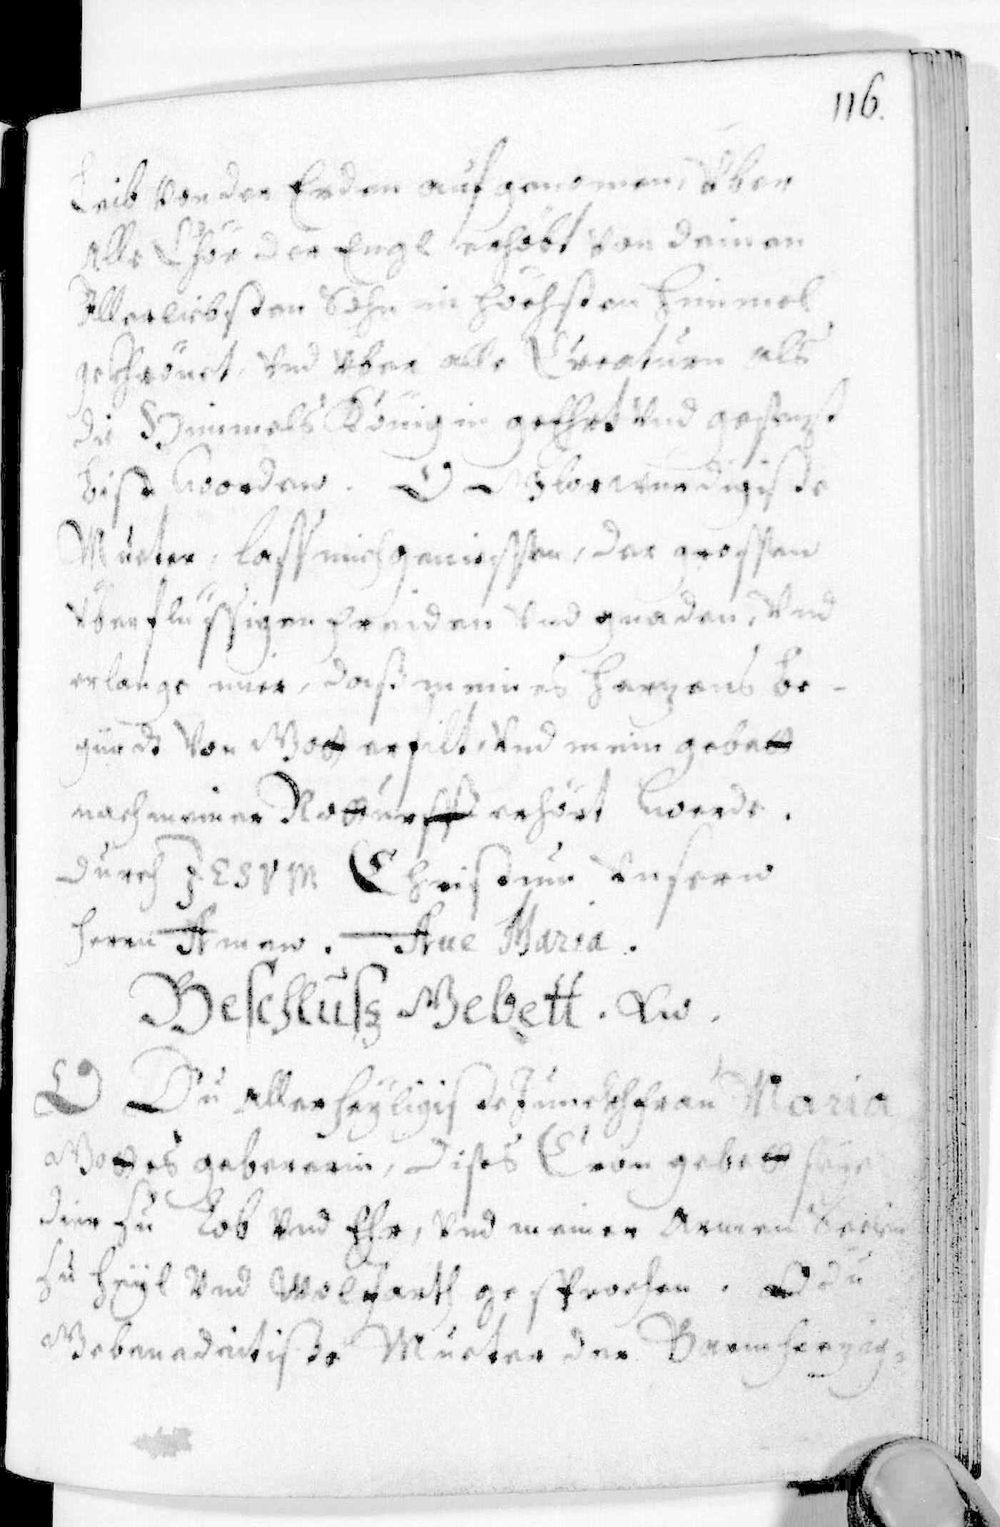 116.
Leib von der Erden aufgenomen, Vber
Alle Chör der Engl erhöbt von deinen
Allerliebsten Sohn im höchsten himmel
gekrönet, vnd vber alle Creaturn als
die Himmels Königin geEhrt vnd gesezt
bist worden. O Glorwürdigiste
Mueter, lass mich geniessen, der grossen
vberflüssigen freiden vnd gnaden, vnd
erlange mier, daß meines herzens be-
gürdt von Gott erfilt, vnd mein gebett
nach meiner Notturfft erhört werde.
durch JESVM Christum vnsern
herrn Amen. Aue Maria.
Beschluß Gebett.
O Du Allerheyligiste Junckhfrau Maria
Gottes gebererin, dises Cron gebett seye
dier zu Lob vnd Ehr, vnd meiner Armen Seelen
zu heyl vnd wolfarth gesprochen. O du
Gebenedeitiste Mueter der Barmherzig-